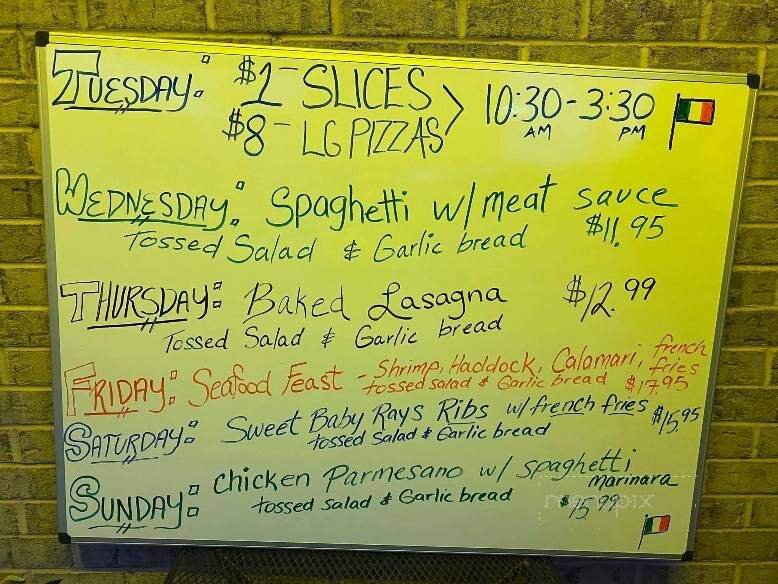 TUESDAY: $1 - SLICES
$8 - LG PIZZAS > 10:30 - 3:30
AM PM
WEDNESDAY: Spaghetti w/ meat sauce
Tossed Salad & Garlic bread $11.95
THURSDAY: Baked Lasagna $12.99
Tossed Salad & Garlic bread
FRIDAY: Seafood Feast - Shrimp, Haddock, Calamari, french fries
tossed salad & Garlic bread $17.95
SATURDAY: Sweet Baby Rays Ribs w/ french fries $15.95
tossed salad & Garlic bread
SUNDAY: chicken Parmesano w/ spaghetti
marinara
tossed salad & Garlic bread $15.99